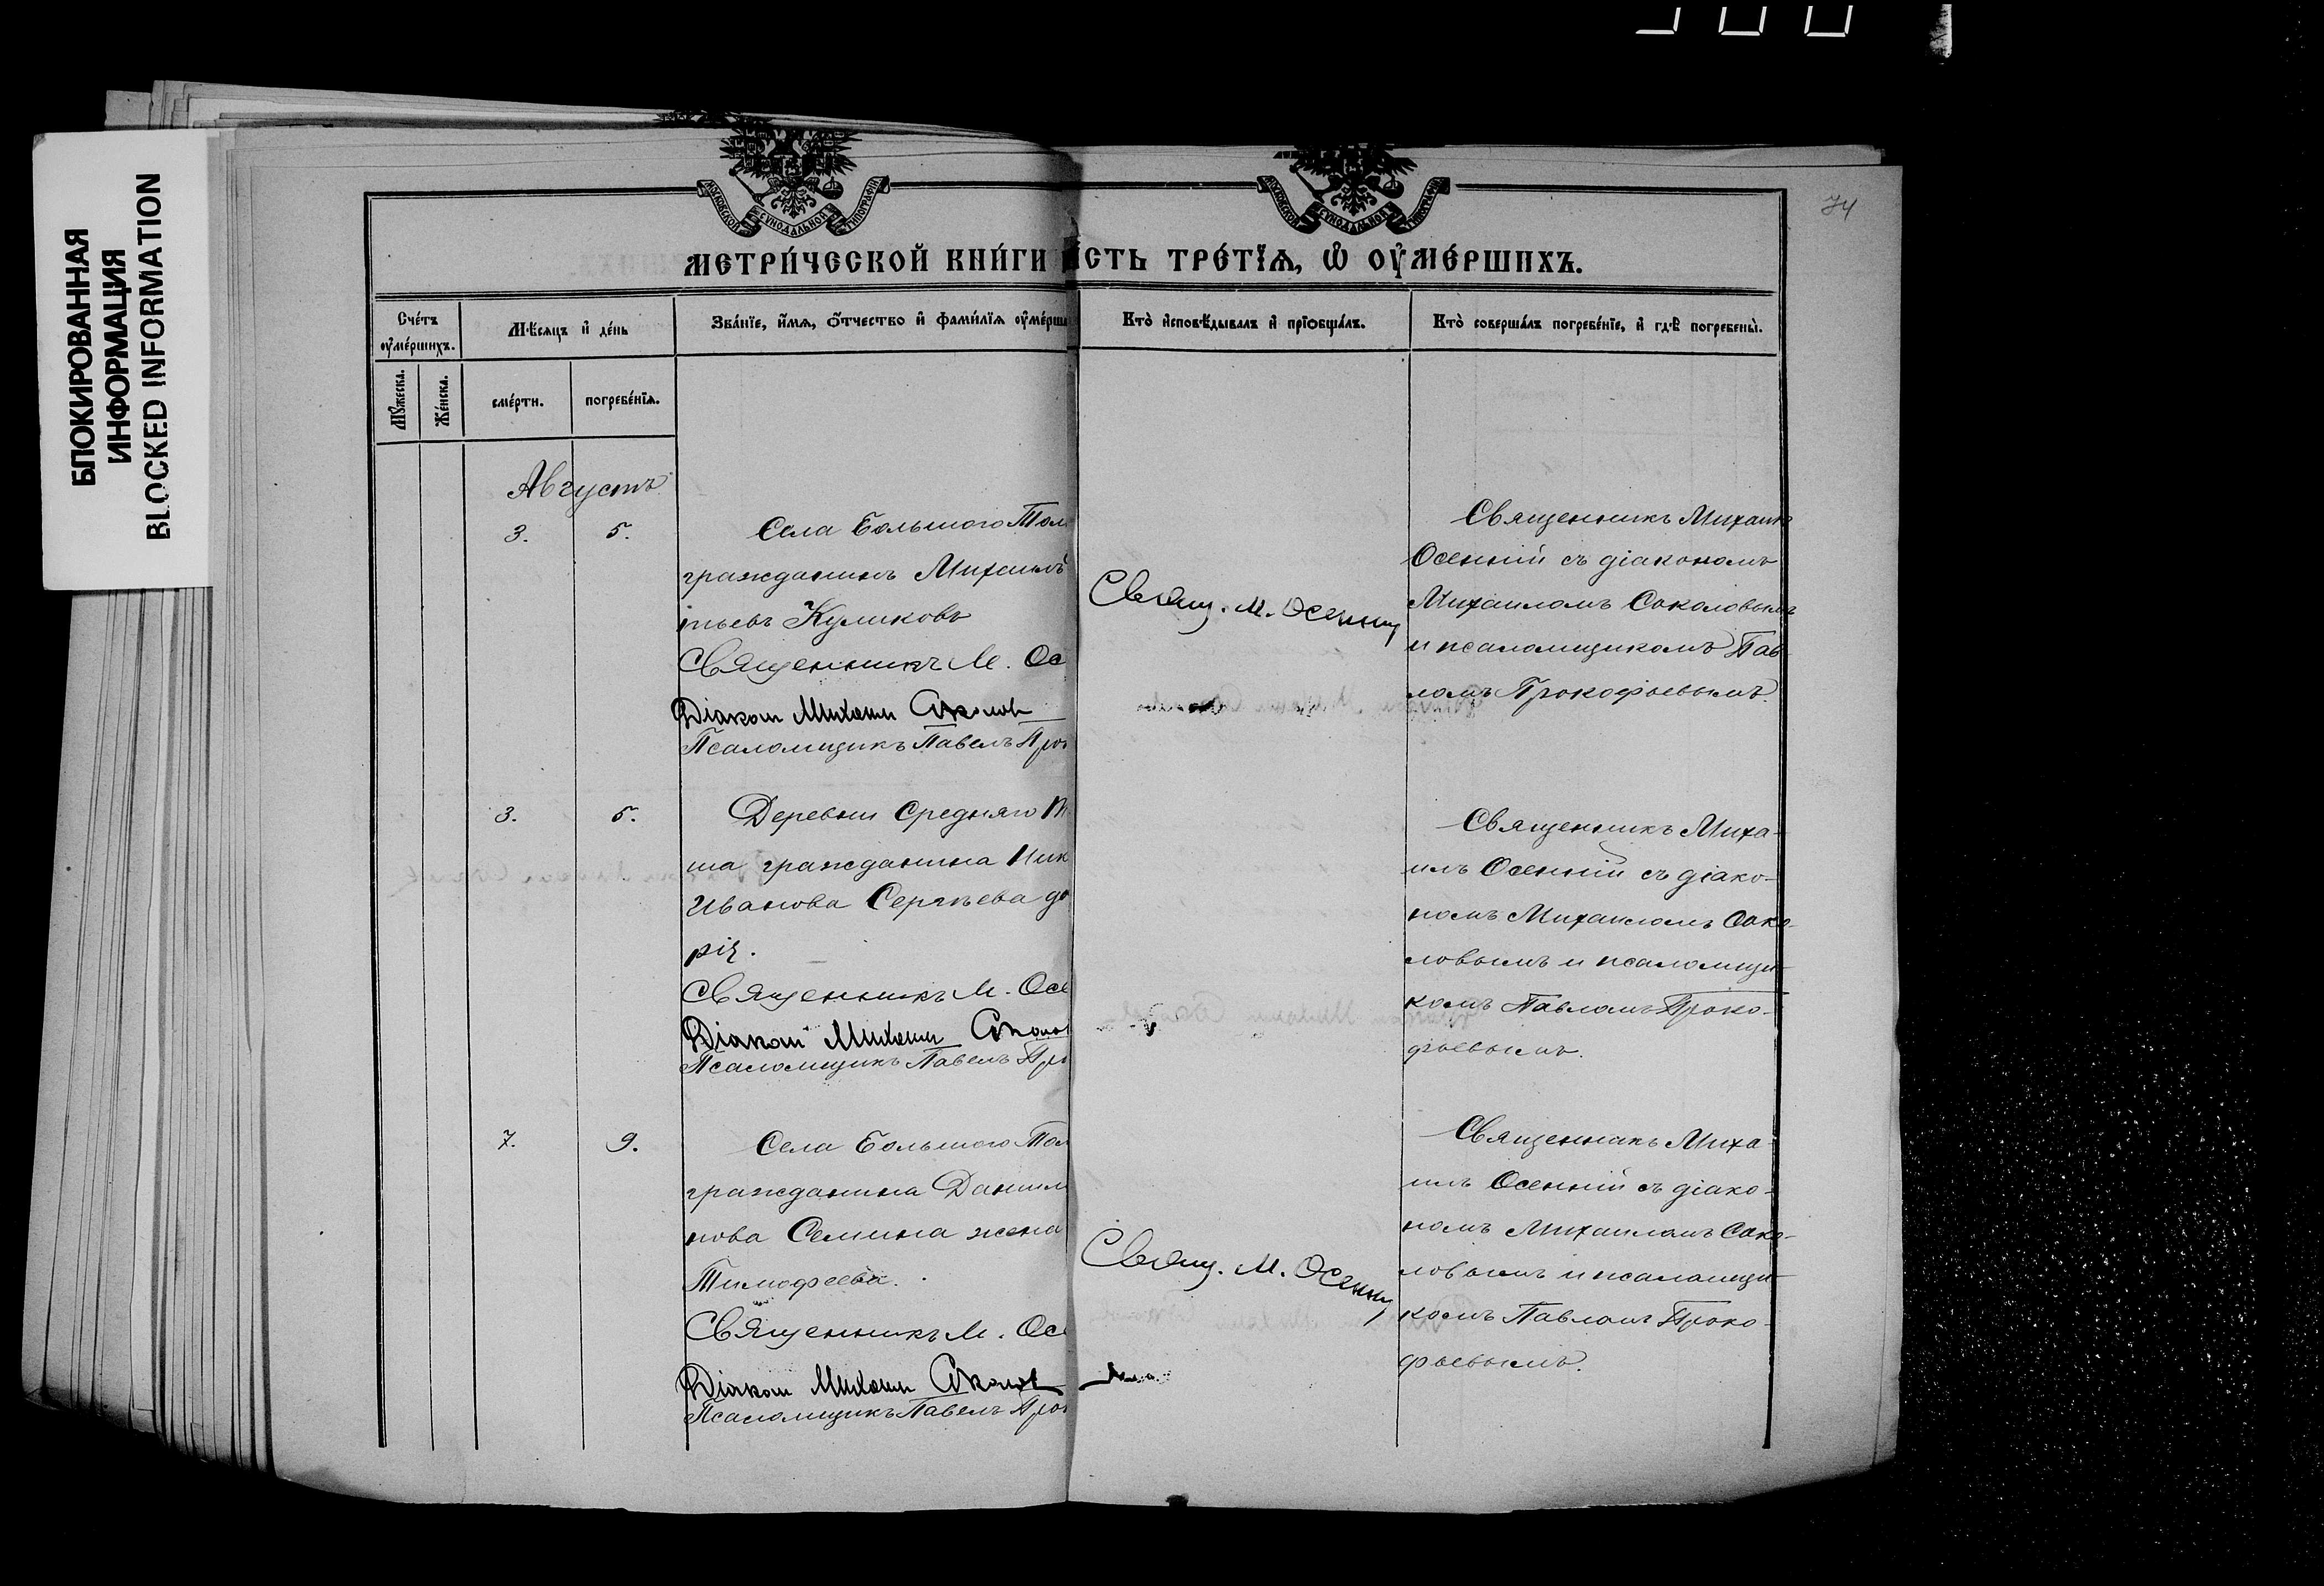 БЛОКИРОВАННАЯ
ИНФОРМАЦИЯ
BLOCKED INFORMATION
74
МОСКОВСКОЙ СУНОДАЛЬНОЙ ТИПОГРАФІИ
МОСКОВСКОЙ СУНОДАЛЬНОЙ ТИПОГРАФІИ
МЕТРИ́ЧЕСКОЙ КНИ́ГИ
СТЬ ТРЕ́ТІѦ, Ѽ ОУ҆МЕ́РШИХЪ.
Сче́тъ оу҆ме́ршихъ.
Мѣ́сяцъ и҆ де́нь
Зва́нїе, и҆́мѧ, ѻ҆́тчество и҆ фами́лїѧ оу҆ме́рш
Кто̀ и҆сповѣ́дывалъ и҆ прїѡбща́лъ.
Кто̀ соверша́лъ погребе́нїе, и҆ гдѣ̀ погребены̀.
Мꙋ́жеска.
Же́нска.
сме́рти.
погребе́нїѧ.
Августъ
3.
5.
Села Большого Тол
гражданинъ Михаилъ
тьевъ Куликовъ
Священникъ М. Ос
Діакон Михаил Соколов
Псаломщикъ Павелъ Прок
Свящ. М. Осенни
Священникъ Михаилъ
Осенній съ діакономъ
Михаиломъ Соколовымъ
и псаломщикомъ Пав
ломъ Прокофьевымъ.
3.
5.
Деревни Средняго
ша гражданина Ник
Иванова Сергѣева до
рія.
Священникъ М. Осе
Діакон Михаил Соколов
Псаломщикъ Павелъ Про
Священникъ Миха-
илъ Осенній съ діако-
номъ Михаиломъ Соко-
ловымъ и псаломщи-
комъ Павломъ Проко-
фьевымъ.
7.
9.
Села Большого Тол
гражданина Данил
нова Семина жена
Тимофеева.
Священникъ М. Осе
Діакон Михаил Соколов
Псаломщикъ Павелъ Прок
Свящ. М. Осенни
Священникъ Миха-
илъ Осенній съ діако-
номъ Михаиломъ Соко-
ловымъ и псаломщи-
комъ Павломъ Проко-
фьевымъ.